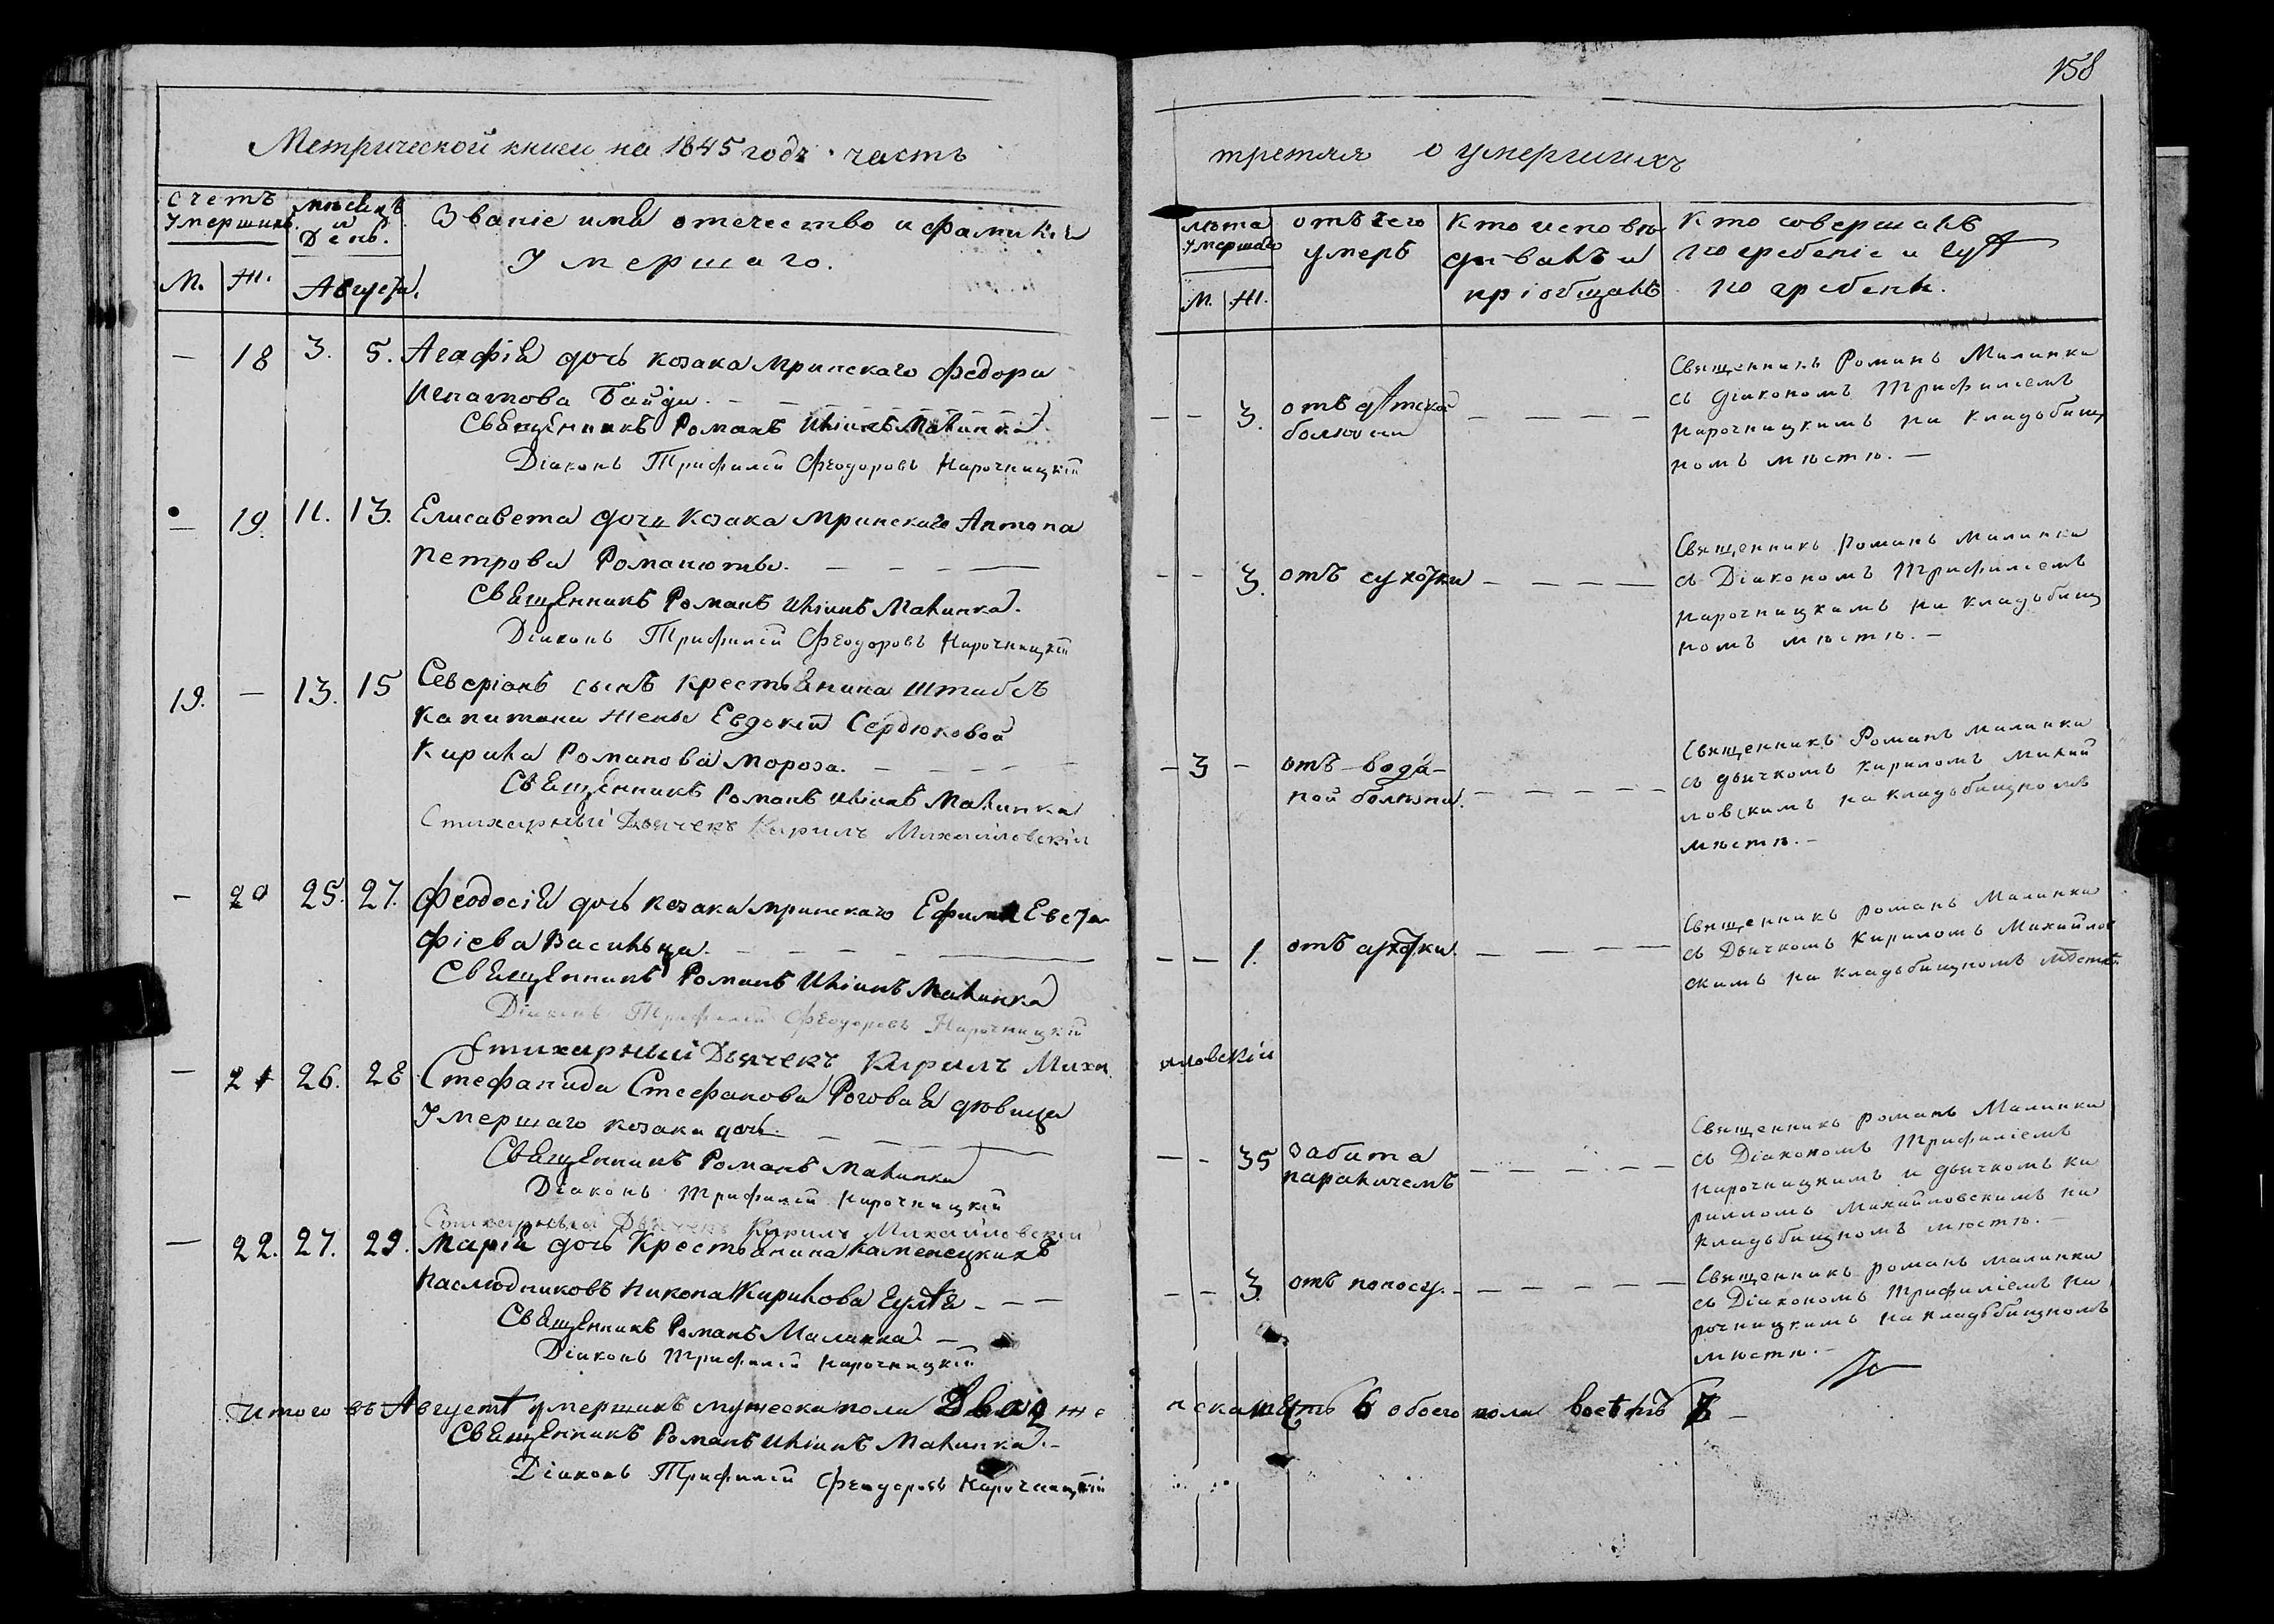 158
Метрической книги на 1845 годъ часть
третяя о умершихъ
счетъ умершихъ
мѣсяцъ и день.
Званіе имя отечество и фамилія
умершаго.
М. Ж. Августа.
лѣта умершаго
М. Ж.
отъ чего умеръ
Кто исповѣдывалъ и пріобщалъ
Кто совершалъ погребеніе и гдѣ погребенъ.
— 18 3. 5. Агафія дочь козака мринскаго Федора
Игнатова Байди. — — —
Священникъ Романъ Маlинка
Діаконъ Трифилій Феодоровъ Нарочницкій
— — 3. отъ дѣтской
болѣзни — — —
Священникъ Романъ Малинка
съ Діакономъ Трифиліемъ
Нарочницкимъ на кладьбищ
номъ мѣстѣ. —
— 19. 11. 13. Елисавета дочь козака мринскаго Антона
Петрова Романюты. — — —
Священникъ Романъ Малинка.
Діаконъ Трифилій Феодоровъ Нарочницкій
— — 3. отъ сухотки — — — —
Священникъ Романъ Малинка
съ Діакономъ Трифиліемъ
Нарочницкимъ на кладьбищ
номъ мѣстѣ. —
19. — 13. 15 Северіанъ сынъ крестьянина штабсъ
капитана жены Евдокіи Сердюковой
Кирила Романова Мороза. — — —
Священникъ Романъ Малинка
Стихарный Дьячекъ Кирилъ Михайловскій
— 3 — отъ водя-
ной болѣзни. — — — —
Священникъ Романъ Малинка
съ дьячкомъ Кириломъ Михай
ловскимъ на кладьбищномъ
мѣстѣ. —
— 20 25. 27. Феодосія дочь козака мринскаго Ефима Евста
фіева Васильца. — — —
Священникъ Романъ Малинка
Діаконъ Трифилій Феодоровъ Нарочницкій
Стихарный Дьячекъ Кирилъ Миха
иловскій
— — 1. отъ сухотки. — — — —
Священникъ Романъ Малинка
съ Дьячкомъ Кириломъ Михайлов
скимъ на кладьбищномъ мѣстѣ.
— 21 26. 28 Стефанида Стефанова Роговая дѣвица
умершаго козака дочь. — — —
Священникъ Романъ Малинка
Діаконъ Трифилій Нарочницкій
Стихарный Дьячекъ Кирилъ Михайловскій
— — 35 Забита
параличемъ — — — —
Священникъ Романъ Малинка
съ Діакономъ Трифиліемъ
Нарочницкимъ и дьячкомъ Ки
риломъ Михайловскимъ на
кладьбищномъ мѣстѣ. —
— 22. 27. 29. Марія дочь Крестьянина Каменецкихъ
наслѣдниковъ Никона Кирилова — — —
Священникъ Романъ Малинка. —
Діаконъ Трифилій Нарочницкій
— — 3. отъ поносу. — — — —
Священникъ Романъ Малинка
съ Діакономъ Трифиліемъ На
рочницкимъ на кладьбищномъ
мѣстѣ. —
Итого въ Августѣ умершихъ мужеска пола два 2 же
нска шесть 6 обоего пола восемь 8 —
Священникъ Романъ Малинка. —
Діаконъ Трифилій Феодоровъ Нарочницкій